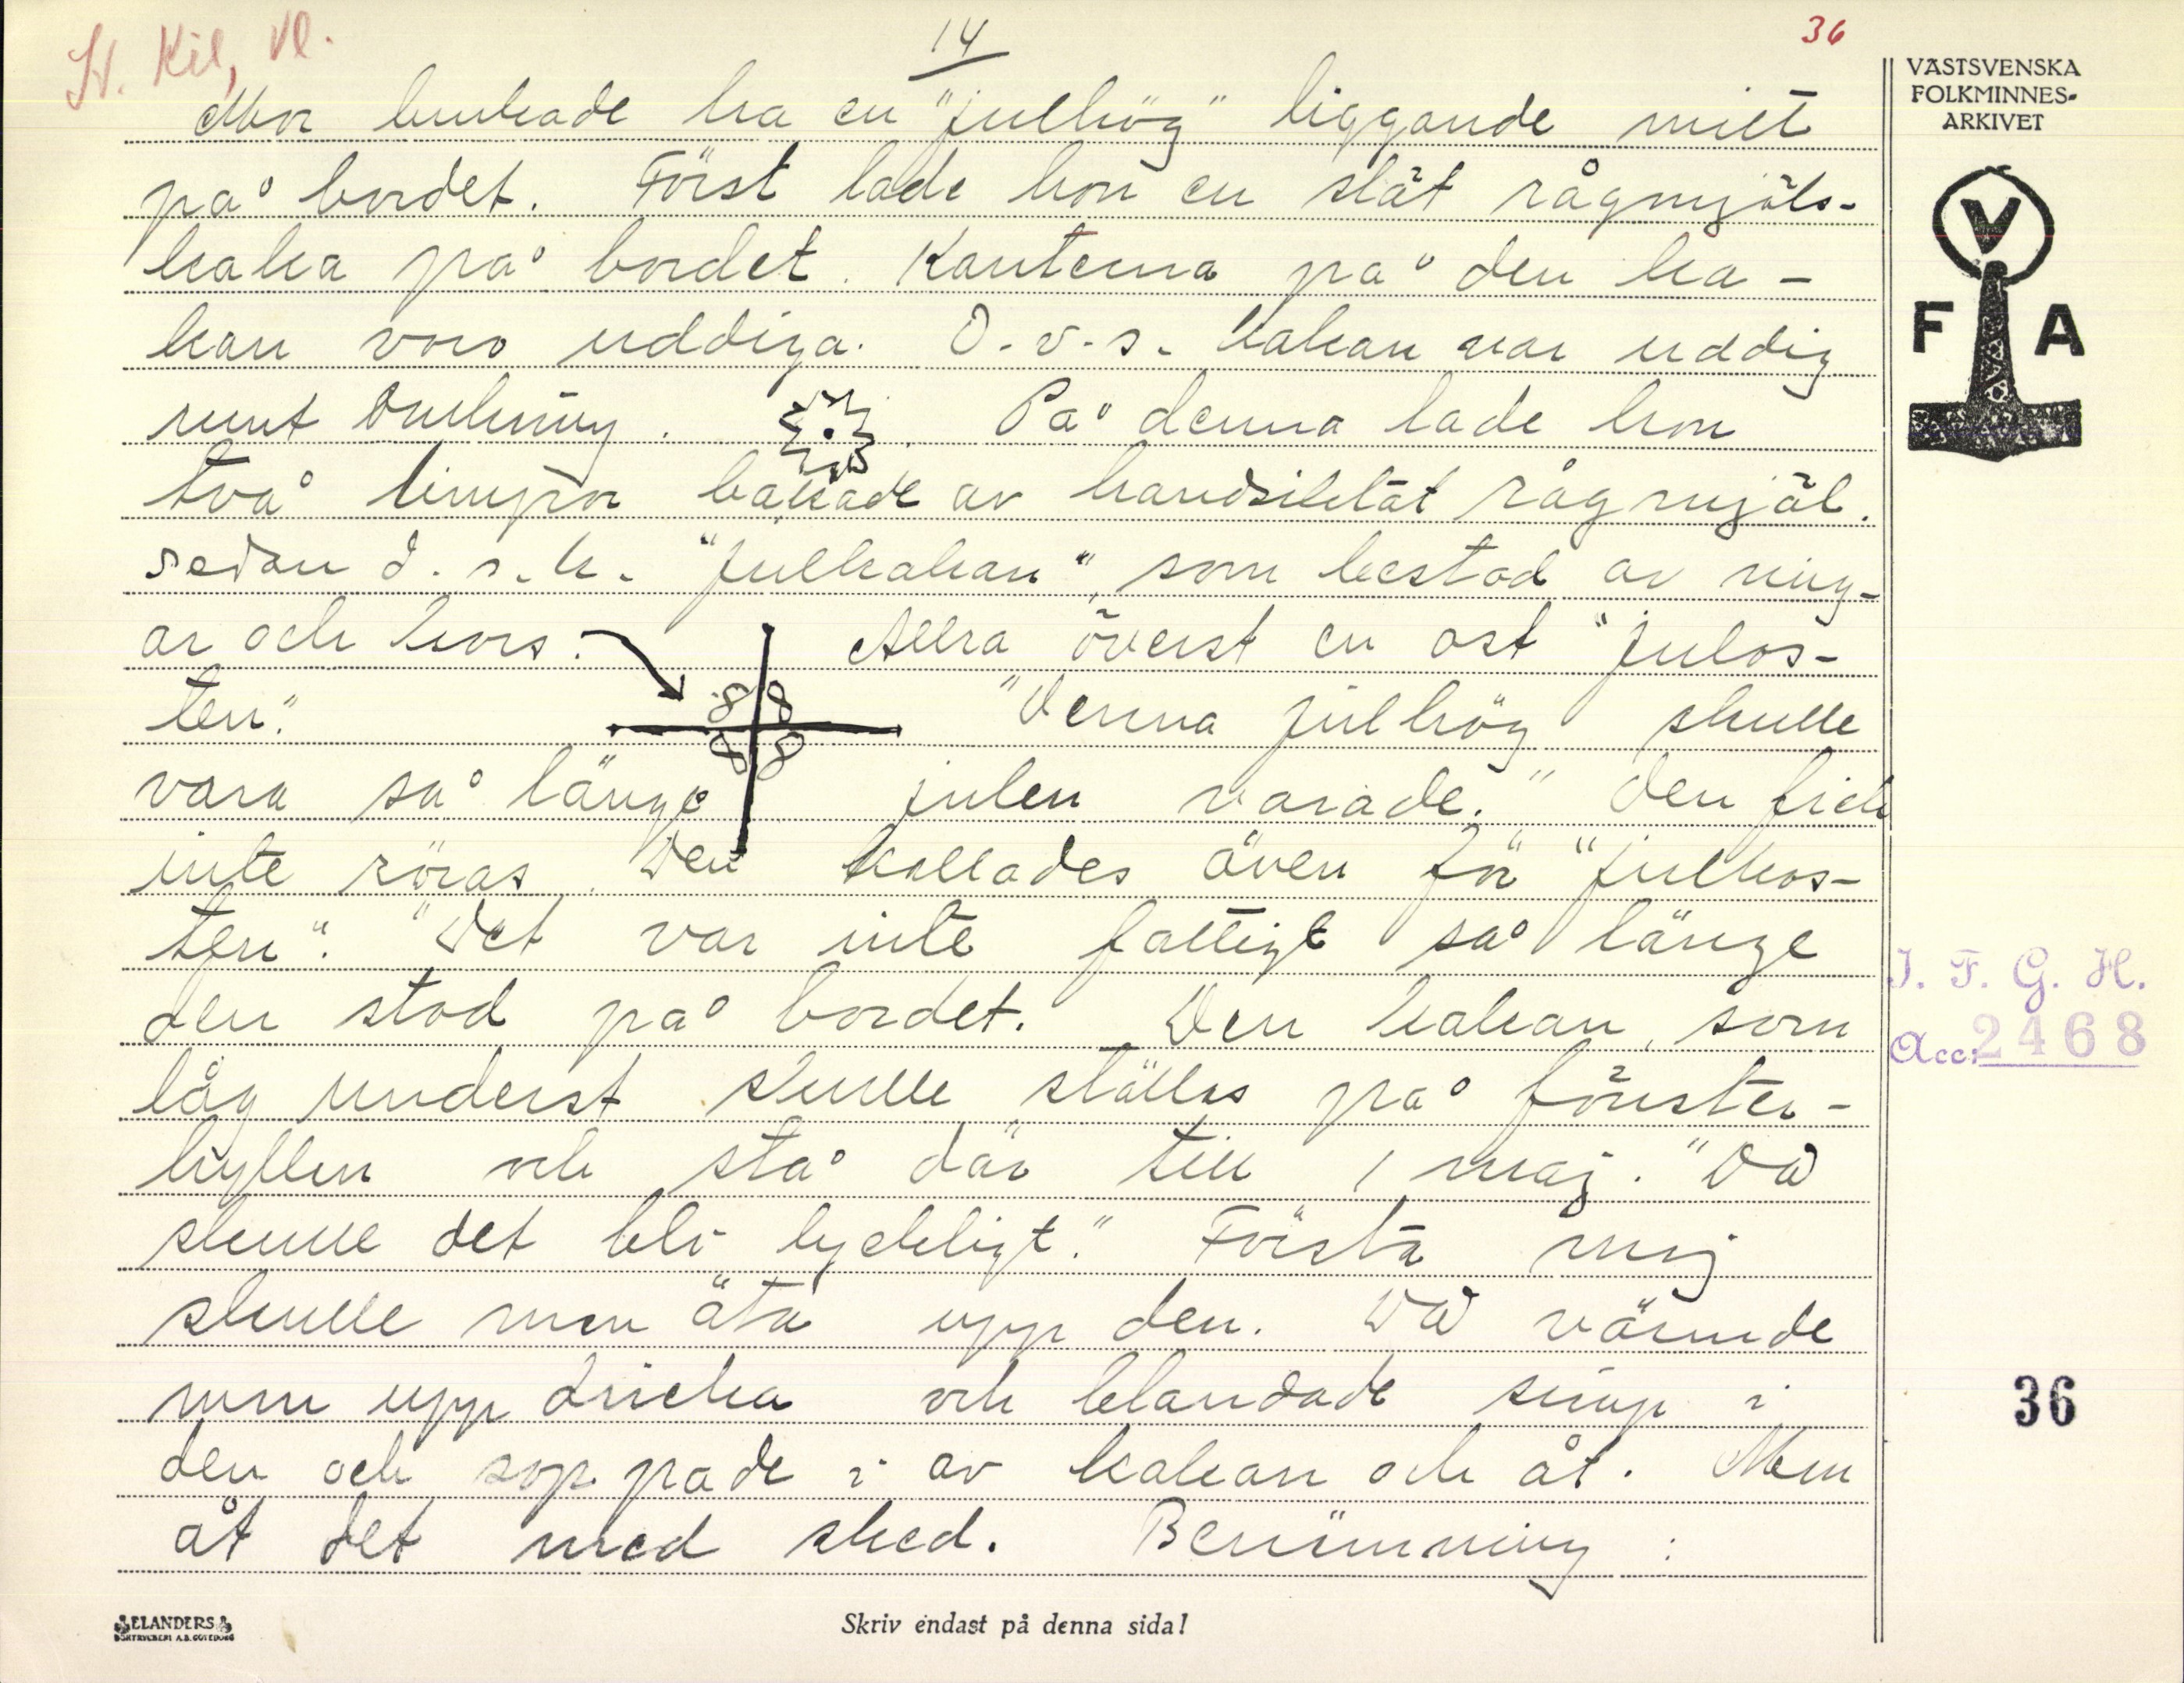 St. Kil, Vl.
14
36
VÄSTSVENSKA
FOLKMINNES-
ARKIVET
V
F A
Mor brukade ha en "julhög" liggande mitt
på bordet. Först lade hon en slät rågmjöls-
kaka på bordet. Kanterna på den ka-
kan voro uddiga. D.v.s. kakan var uddig
runt omkring. På denna lade hon
två limpor bakade av handsiktat rågmjöl.
sedan d.s.k. "julkakan", som bestod av ring-
ar och kors. Allra överst en ost "julos-
ten". "Denna julhög skulle
vara så länge julen varade." Den fick
inte röras. Den kallades även för "julkos-
ten". "Det var inte fattigt så länge
den stod på bordet. Den kakan, som
låg underst skulle ställas på fönster-
hyllen och stå där till 1 maj. "Då
skulle det bli lyckligt." Första maj
skulle man äta upp den. Då värmde
man upp dricka och blandade sirap i
den och soppade i av kakan och åt. Man
åt det med sked. Benämning :
I. F. G. H.
Acc: 2468
36
ELANDERS
BOKTRYCKERI A.B. GÖTEBORG
Skriv endast på denna sida!